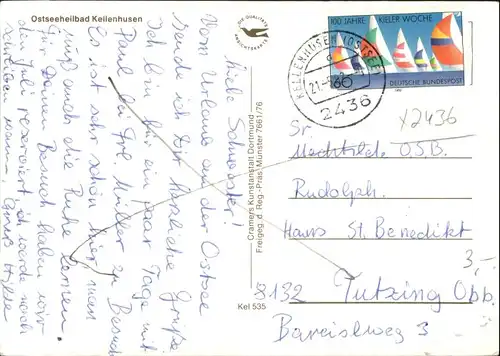 Ostseeheilbad Kellenhusen
DIE QUALITÄTS
ANSICHTSKARTE
100 JAHRE KIELER WOCHE
60
DEUTSCHE BUNDESPOST
KELLENHUSEN (OSTSEE)
2436
Y2436
Liebe Schwester!
Vom Urlaub an der Ostsee
sende ich Dir herzliche Grüße
Ich bin für ein paar Tage mit
Paul bei Frl. Müller zu Besuch
Es ist sehr schön hier man
muß auch die Ruhe lernen.
Für Deinen Besuch haben wir
den Juli reserviert, ich werde noch
schreiben wann. Gruß
Cramers Kunstanstalt Dortmund
Freigeg. d. Reg.-Präs. Münster 7661/76
Kel 535
Sr.
Mechtilde O.S.B.
Rudolph.
Haus St. Benedikt
3,-
8132 Tutzing Obb.
Bareislweg 3